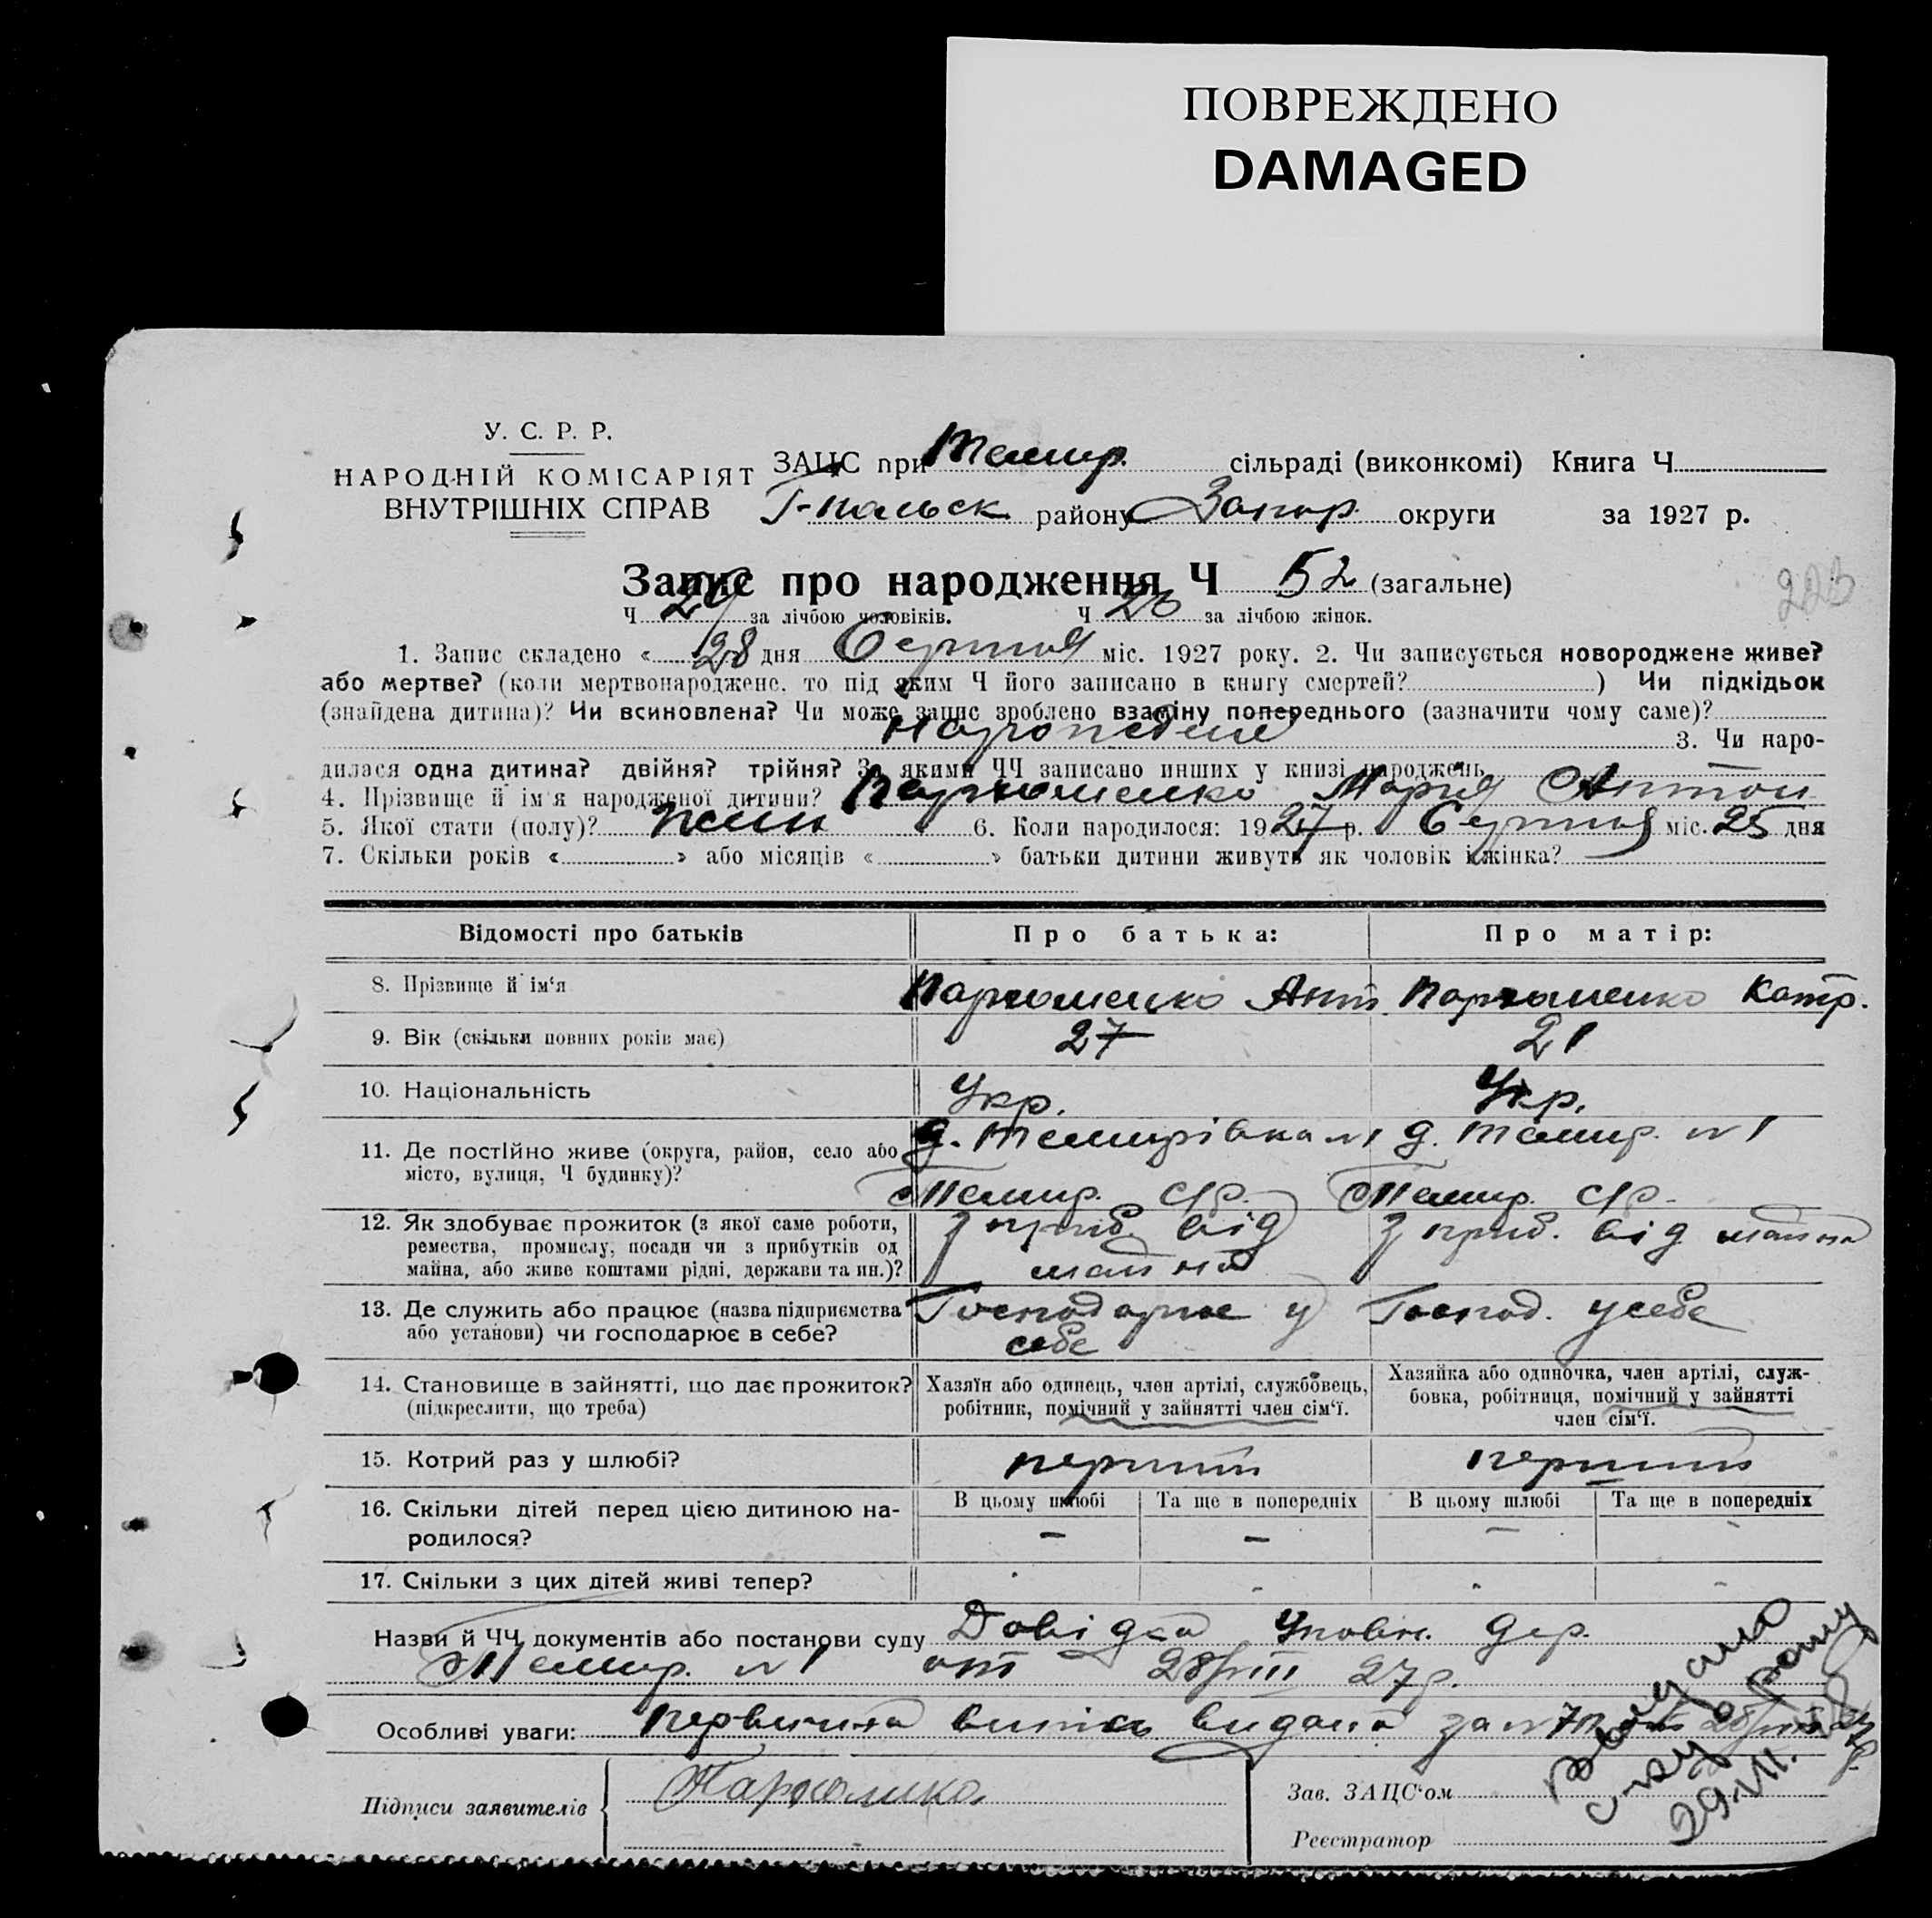 ПОВРЕЖДЕНО
DAMAGED
У. С. Р. Р.
НАРОДНІЙ КОМІСАРІЯТ
ВНУТРІШНІХ СПРАВ
ЗАЦС при Темир. сільраді (виконкомі) Книга Ч
Г-польск району Запор. округи за 1927 р.
Запис про народження Ч 52 (загальне)
223
Ч за лічбою чоловіків. Ч 26 за лічбою жінок.
1. Запис складено « 28 дня Серпня міс. 1927 року. 2. Чи записується новороджене живе?
або мертве? (коли мертвонароджене, то під яким Ч його записано в книгу смертей? ) Чи підкідьок
(знайдена дитина)? Чи всиновлена? Чи може запис зроблено взаміну попереднього (зазначити чому саме)?
3. Чи наро-
дилася одна дитина? двійня? трійня? За якими ЧЧ записано инших у книзі народжень
4. Прізвище й ім'я народженої дитини? Пархоменко Мария Антон
5. Якої стати (полу)? жин 6. Коли народилося: 1927 р. Серпня міс. 25 дня
7. Скільки років « » або місяців « » батьки дитини живуть як чоловік і жінка?
Відомості про батьків Про батька: Про матір:
8. Прізвище й ім'я Пархоменко Ант. Пархоменко Катр.
9. Вік (скільки повних років має) 27 21
10. Національність Укр. Укр.
11. Де постійно живе (округа, район, село або місто, вулиця, Ч будинку)? д. Темирівка №1 д. Темир. №1
Темир. с/р. Темир. с/р.
12. Як здобуває прожиток (з якої саме роботи, ремества, промислу, посади чи з прибутків од майна, або живе коштами рідні, держави та ин.)? з приб. від майна з приб. від майна
13. Де служить або працює (назва підприємства або установи) чи господарює в себе? Господарює у себе Господ. у себе
14. Становище в зайнятті, що дає прожиток? (підкреслити, що треба)
Хазяїн або одинець, член артілі, службовець, робітник, помічний у зайнятті член сім'ї.
Хазяйка або одиночка, член артілі, службовка, робітниця, помічний у зайнятті член сім'ї.
15. Котрий раз у шлюбі? перший перший
16. Скільки дітей перед цією дитиною народилося?
В цьому шлюбі Та ще в попередніх В цьому шлюбі Та ще в попередніх
— — — -
17. Скільки з цих дітей живі тепер?
Назви й ЧЧ документів або постанови суду Довідка Уповн. дер.
Темир. №1 от 28/VIII 27р.
Особливі уваги: первична випись видана за №
Підписи заявителів Пархоменко
Зав. ЗАЦС'ом
Реєстратор